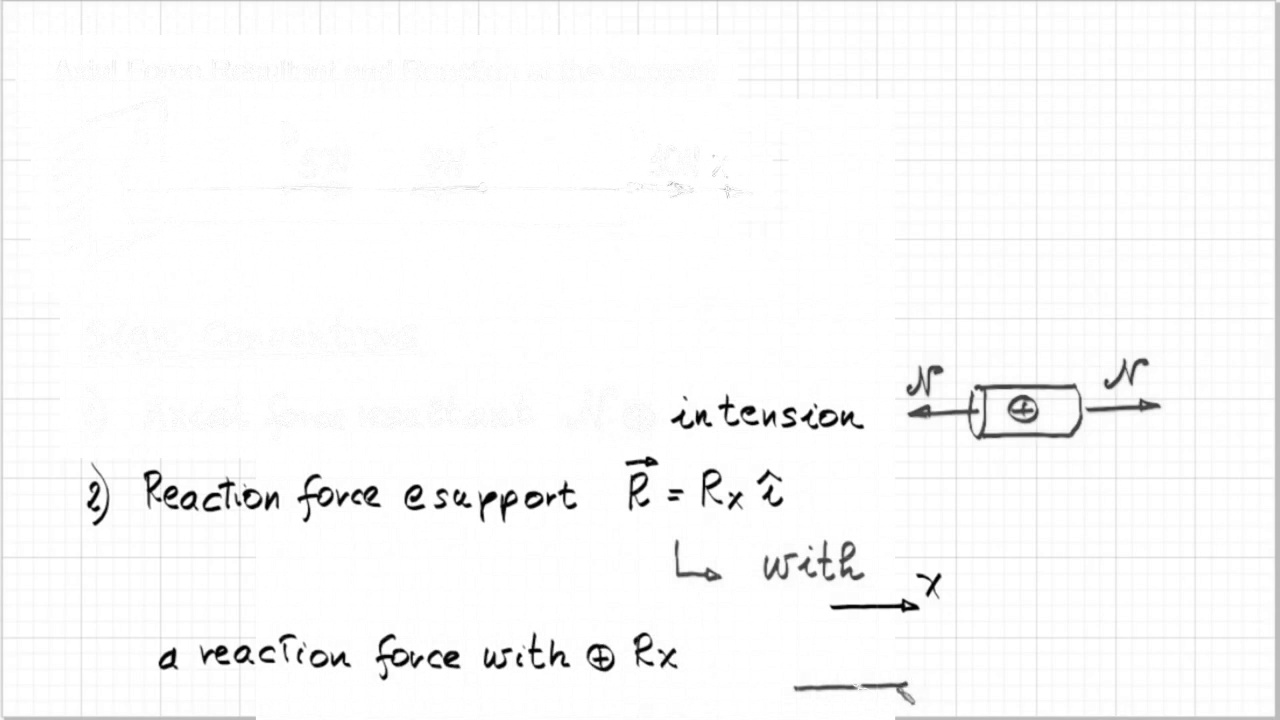 Axial Force Resultant and Reaction at the Support
5N
10N x
Sign Conventions
N N
1) Axial force resultant N ⊕ in tension ⊕
2) Reaction force @ support R⃗ = Rx î
↳ with
x
a reaction force with ⊕ Rx